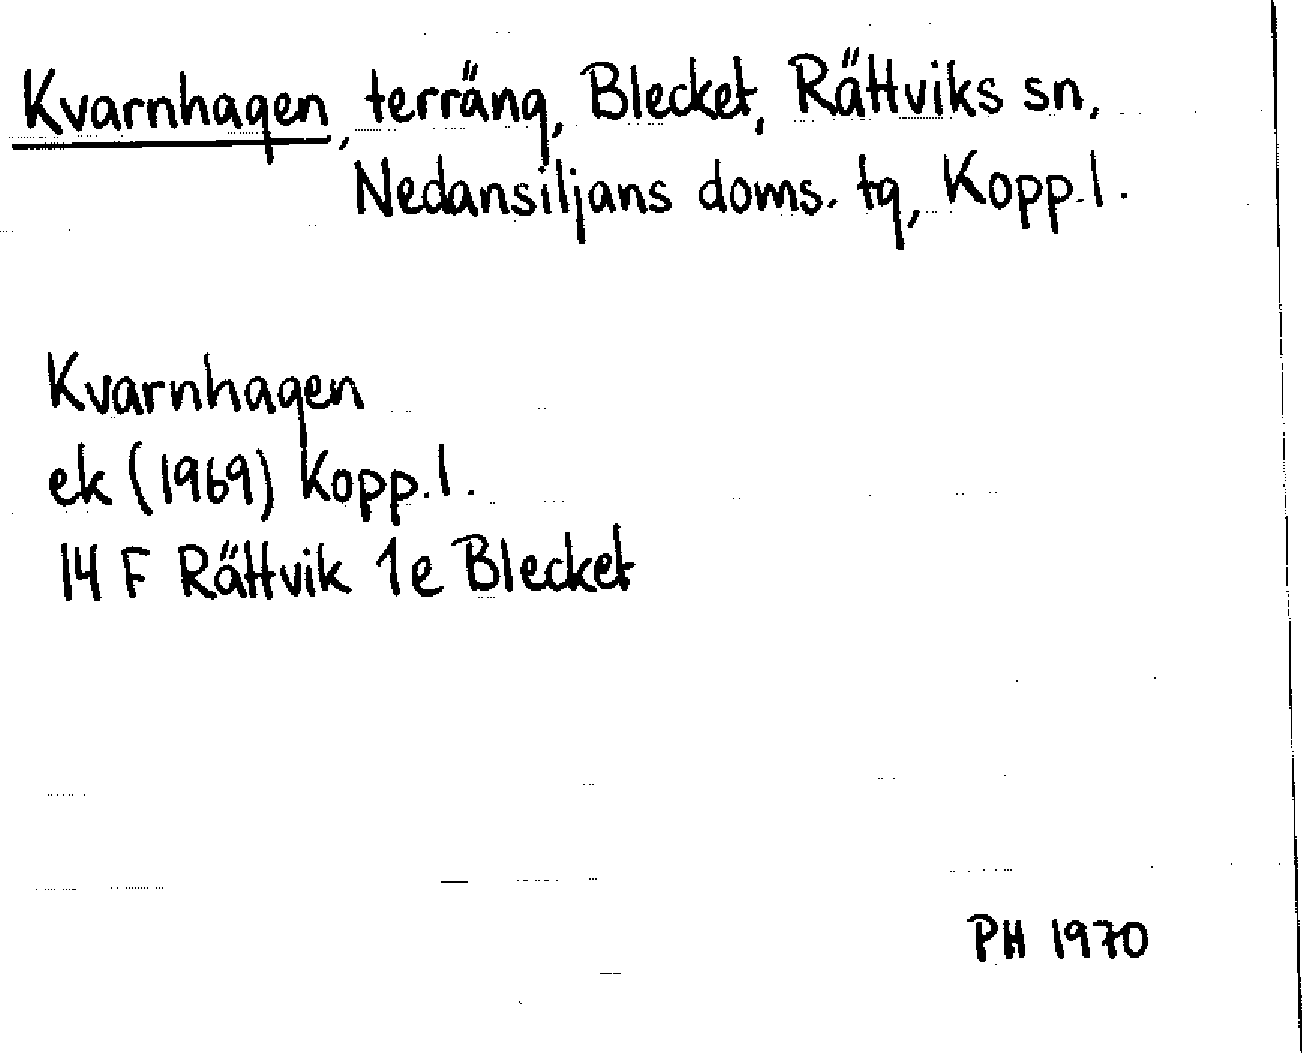 Kvarnhagen, terräng, Blecket, Rättviks sn,
Nedansiljans doms. tg, Kopp. l.
Kvarnhagen
ek (1969) Kopp. l.
14 F Rättvik 1e Blecket
PH 1970